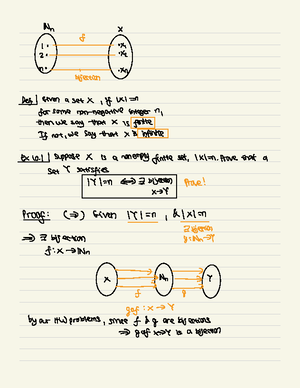 ℕn X
f
1 · · x1
2 · · x2
n · · xn
bijection
Def | Given a set X, if |X| = n
for some non-negative integer n,
then we say that X is finite
If not, we say that X is infinite
Suppose X is a nonempty finite set, |X| = n. Prove that a
set Y satisfies
|Y| = n ⟺ ∃ bijection Prove!
X → Y
Proof: (⇒) Given |Y| = n, & |X| = n
⇒ ∃ bijection ∃ bijection
f: X → ℕn g: ℕn → Y
X ℕn Y
f g
g∘f : X → Y
by our HW problems, since f & g are bijections
⇒ g∘f X→Y is a bijection